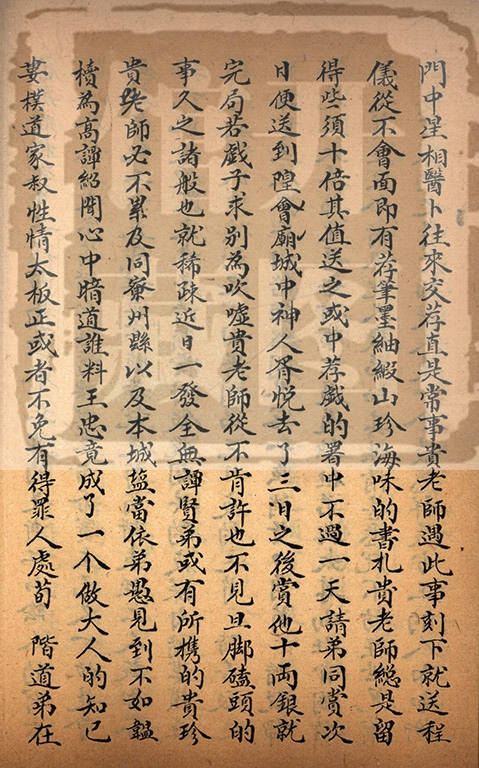 門中星相醫卜往來交荐直是常事貴老師遇此事刻下就送程
儀從不會面即有荐筆墨紬緞山珍海味的書札貴老師總是留
得些須十倍其值送之或中荐戯的署中不過一天請弟同賞次
日便送到隍會廟城中神人胥悅去了三日之後賞他十両銀就
完局若戯子求别為吹噓貴老師從不肯許也不見旦脚磕頭的
事久之諸般也就稀疎近日一發全無譚賢弟或有所携的貴珍
貴老師必不累及同寮州縣以及本城盐當依弟愚見到不如韞
櫝為高譚紹聞心中暗道誰料王忠竟成了一个做大人的知已
婁樸道家叔性情太板正或者不免有得罪人處荀 階道弟在